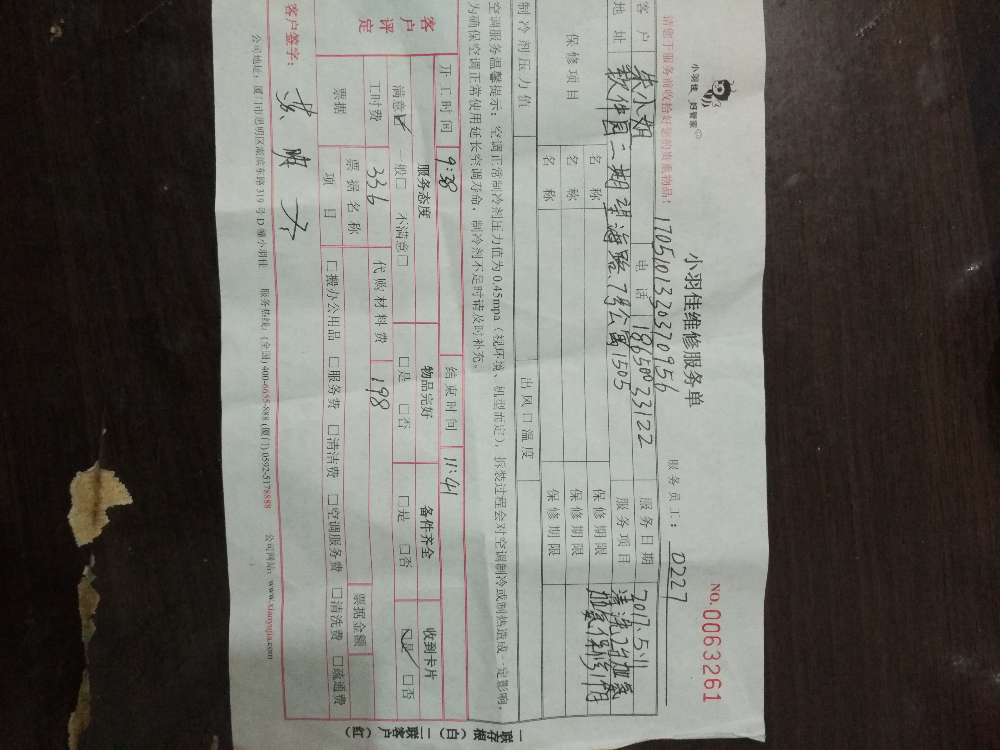 小羽佳 好管家
小羽佳维修服务单
NO.0063261
1705101320370956
服务员工：
D227
请您于服务前收拾好您的贵重物品！
客户
朱小姐
电话
18650033122
服务日期
2017.5.11
地址
软件园二期望海路7号公寓1505
服务项目
保修项目
名称
保修期限
名称
保修期限
名称
保修期限
制冷剂压力值
出风口温度
空调服务温馨提示：空调正常制冷剂压力值为0.45mpa（视环境、机型而定），拆装过程会对空调制冷或制热造成一定影响，
为确保空调正常使用延长空调寿命，制冷剂不足时请及时补充。
开工时间
9:38
结束时间
11:41
客户评定
服务态度
物品完好
备件齐全
收到卡片
满意☑ 一般□ 不满意□
□是 □否
□是 □否
☑是 □否
工时费
336
代购材料费
198
票据
票据名称
票据金额
项目
□搬办公用品 □服务费 □清洁费 □空调服务费 □清洗费 □疏通费
客户签字：
公司地址：厦门市思明区湖滨东路319号D幢小羽佳 服务热线：(全国) 400-6655-888 (厦门) 0592-5178888 公司网站：www.xiaoyujia.com
一联存根（白）二联客户（红）